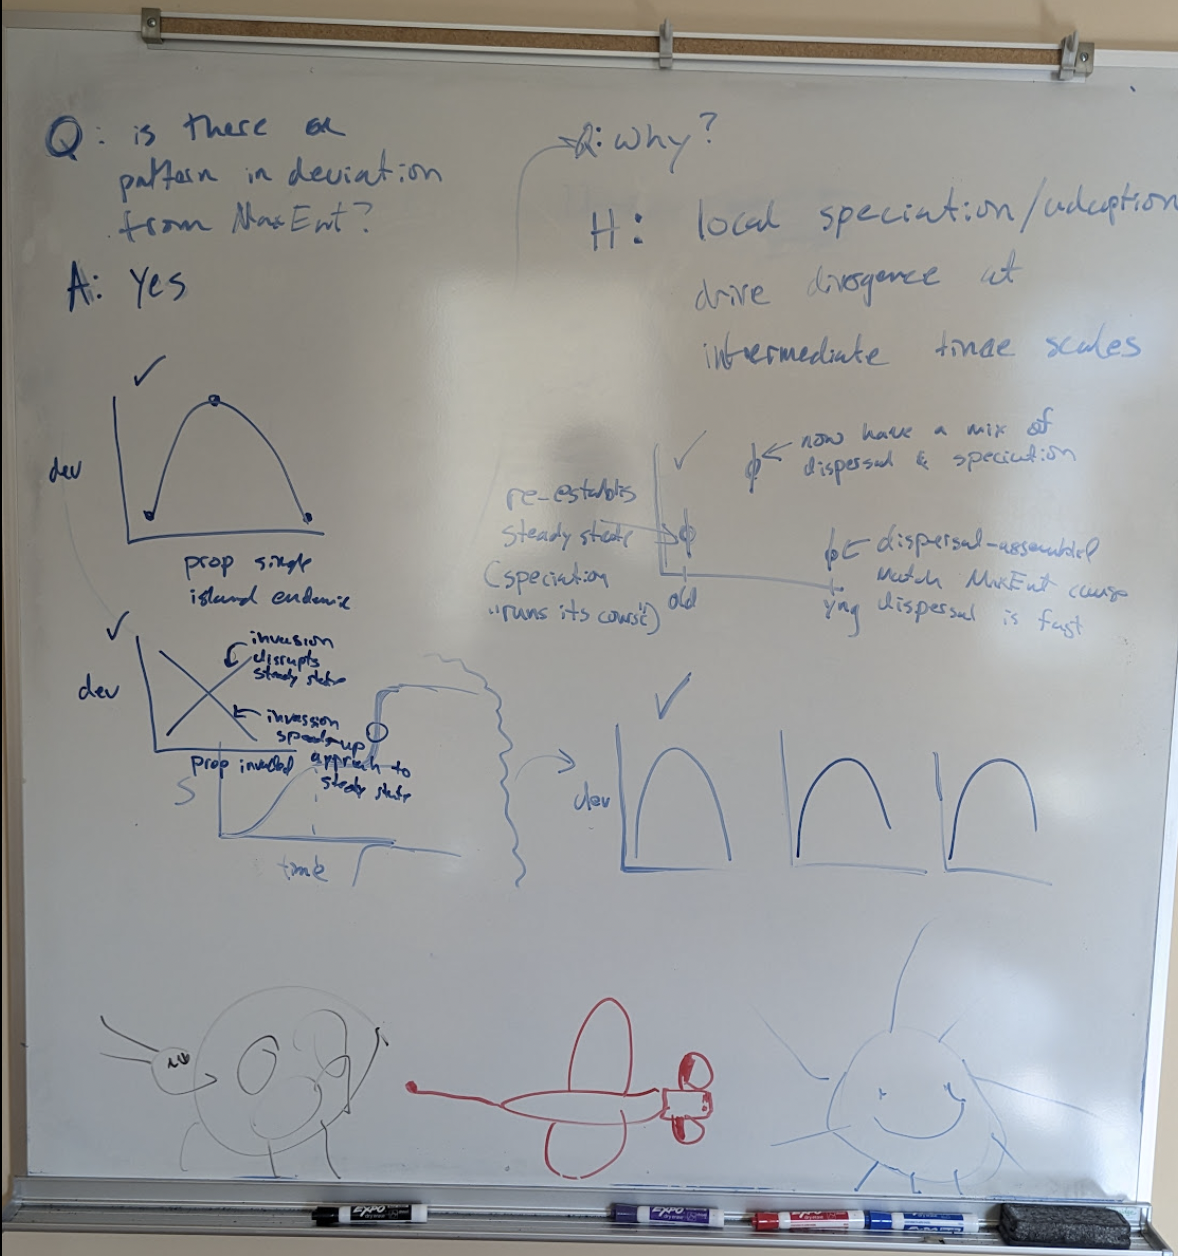 Q: is there a
pattern in deviation
from MaxEnt?
A: Yes
dev
prop single
island endemic
dev
invasion
disrupts
steady state
invasion
speeds up
approach to
steady state
prop invaded
S
time
Q: why?
H: local speciation/adaption
drive divergence at
intermediate time scales
now have a mix of
dispersal & speciation
re-establis
steady state
(speciation
"runs its course")
old
yng
dispersal-assembled
match MaxEnt cause
dispersal is fast
dev
EXPO
EXPO
EXPO
EXPO